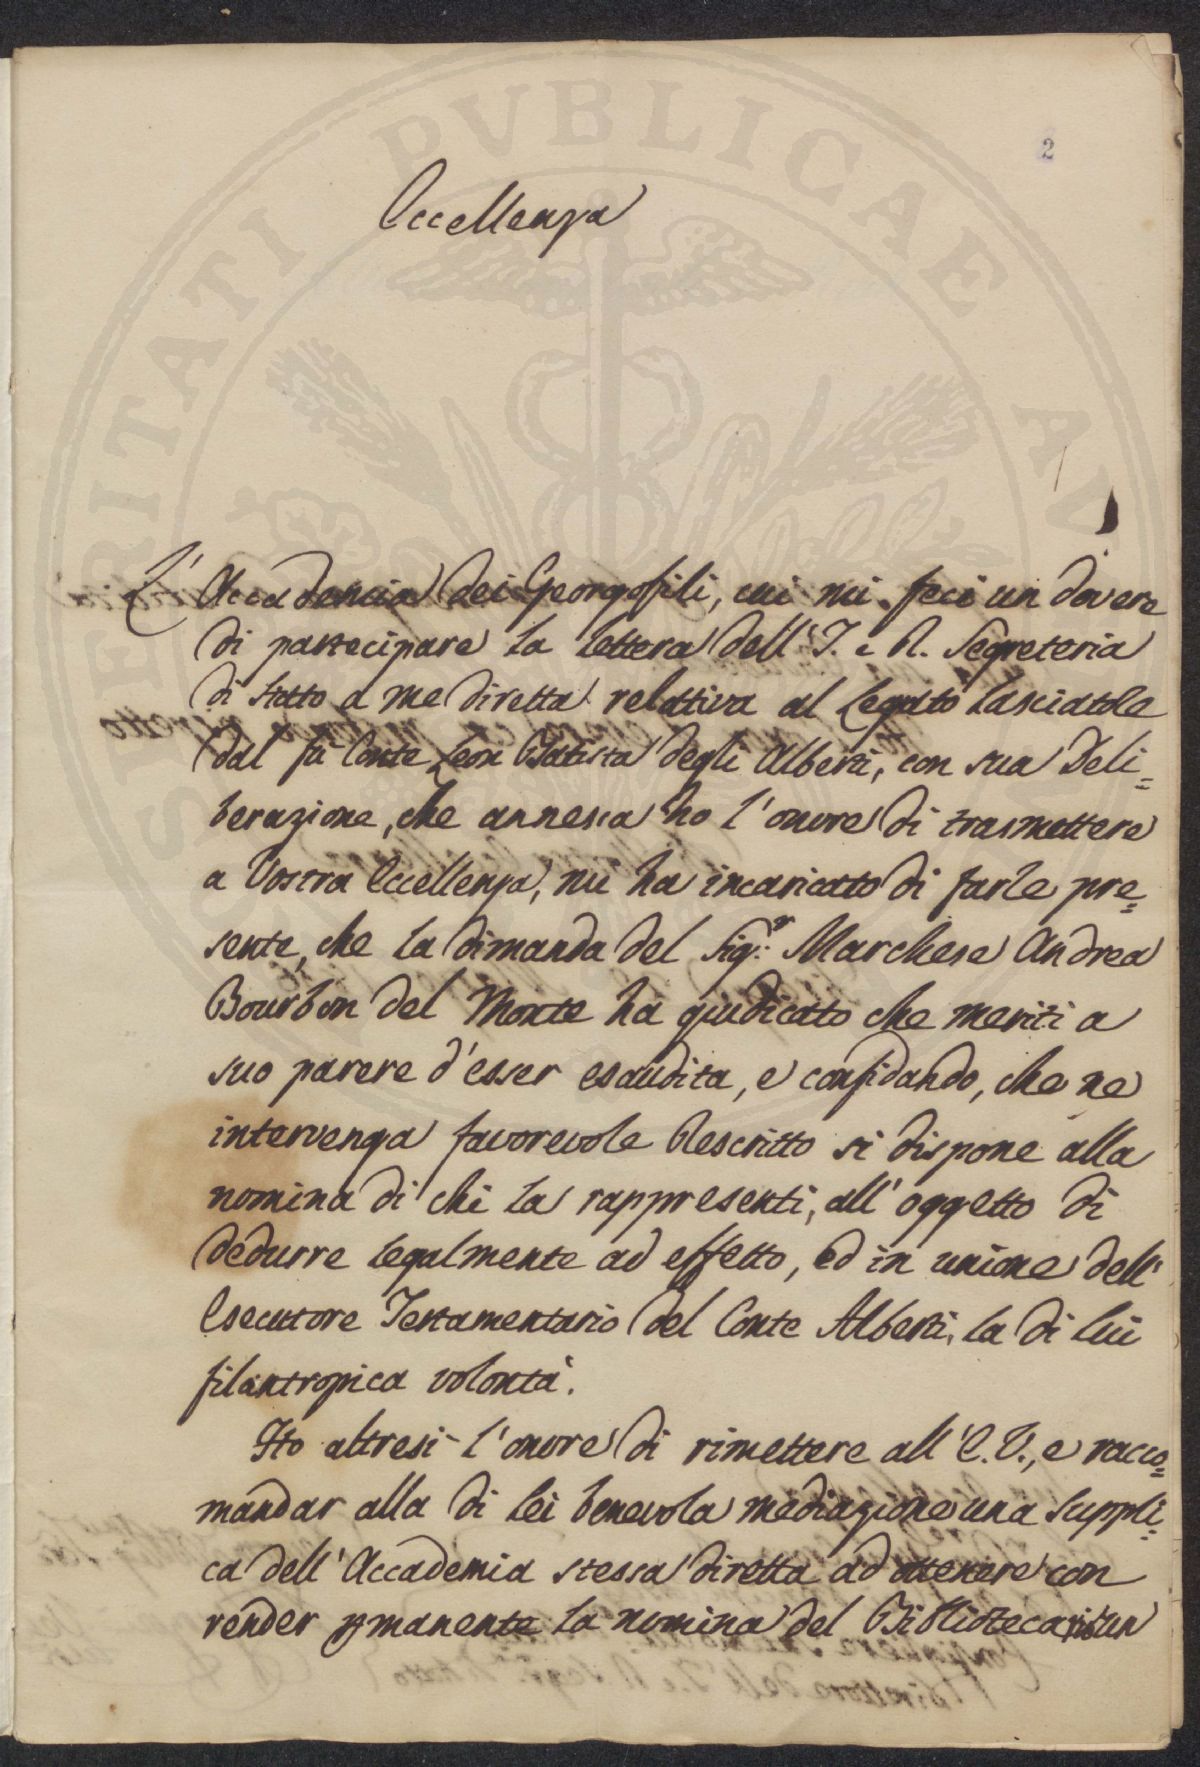 2
Eccellenza
L'Accademia dei Georgofili, cui mi feci un dovere
di partecipare la lettera dell'I. e R. Segreteria
di Stato a me diretta relativa al Legato lasciatole
dal fù Conte Leon Batista degli Alberti, con sua Deli=
berazione, che annessa ho l'onore di trasmettere
a Vostra Eccellenza, mi ha incaricato di farle pre=
sente, che la dimanda del Sig.r Marchese Andrea
Bourbon del Monte ha giudicato che meriti a
suo parere d'esser esaudita, e confidando, che ne
intervenga favorevole Rescritto si dispone alla
nomina di chi la rappresenti, all'oggetto di
dedurre legalmente ad effetto, ed in unione dell'
Esecutore Testamentario del Conte Alberti, la di lui
filantropica volontà.
Ho altresì l'onore di rimettere all'E.V., e racco=
mandar alla di Lei benevola mediazione una Suppli=
ca dell'Accademia stessa diretta ad ottenere con
render pmanente la nomina del Bibliotecario un
PVBLICAE